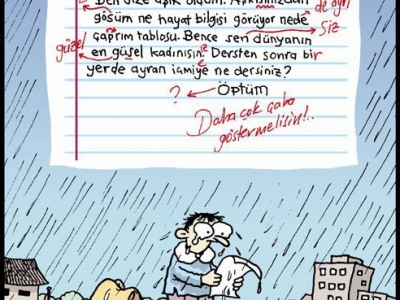 Ben size aşık oldum. Aşkınızdan
de ayrı
gösüm ne hayat bilgisi görüyor nede
Siz
güzel
çaprım tablosu. Bence sen dünyanın
en güsel kadınısın. Dersten sonra bir
yerde ayran içmiye ne dersiniz?
e
? Öptüm
Daha çok çaba
göstermelisin!..